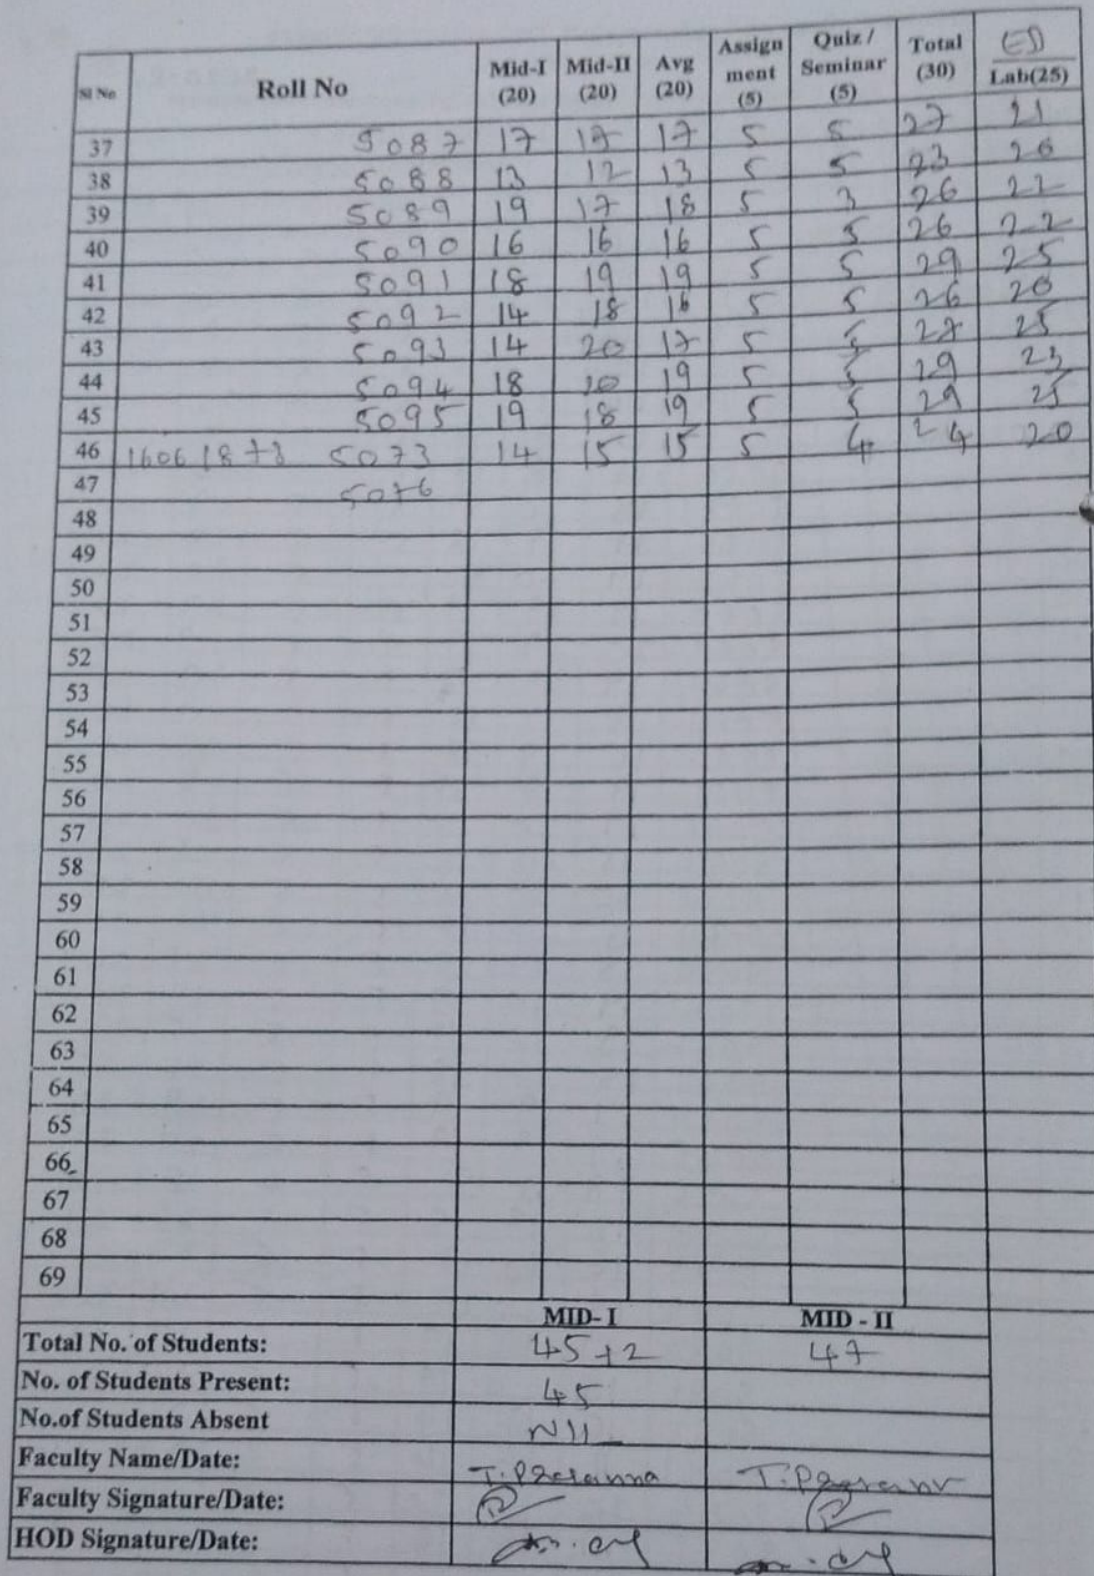 Sl No Roll No Mid-I (20) Mid-II (20) Avg (20) Assign ment (5) Quiz / Seminar (5) Total (30) ED Lab(25)
37 5087 17 17 17 5 5 27 21
38 5088 13 12 13 5 5 23 20
39 5089 19 17 18 5 3 26 22
40 5090 16 16 16 5 5 26 22
41 5091 18 19 19 5 5 29 25
42 5092 14 18 16 5 5 26 20
43 5093 14 20 17 5 5 27 25
44 5094 18 20 19 5 5 29 23
45 5095 19 18 19 5 5 29 25
46 160618733 5073 14 15 15 5 4 24 20
47 5076
48
49
50
51
52
53
54
55
56
57
58
59
60
61
62
63
64
65
66
67
68
69
MID- I MID - II
Total No. of Students: 45+2 47
No. of Students Present: 45
No.of Students Absent Nil
Faculty Name/Date: T. Prasanna T. Prasanna
Faculty Signature/Date:
HOD Signature/Date: